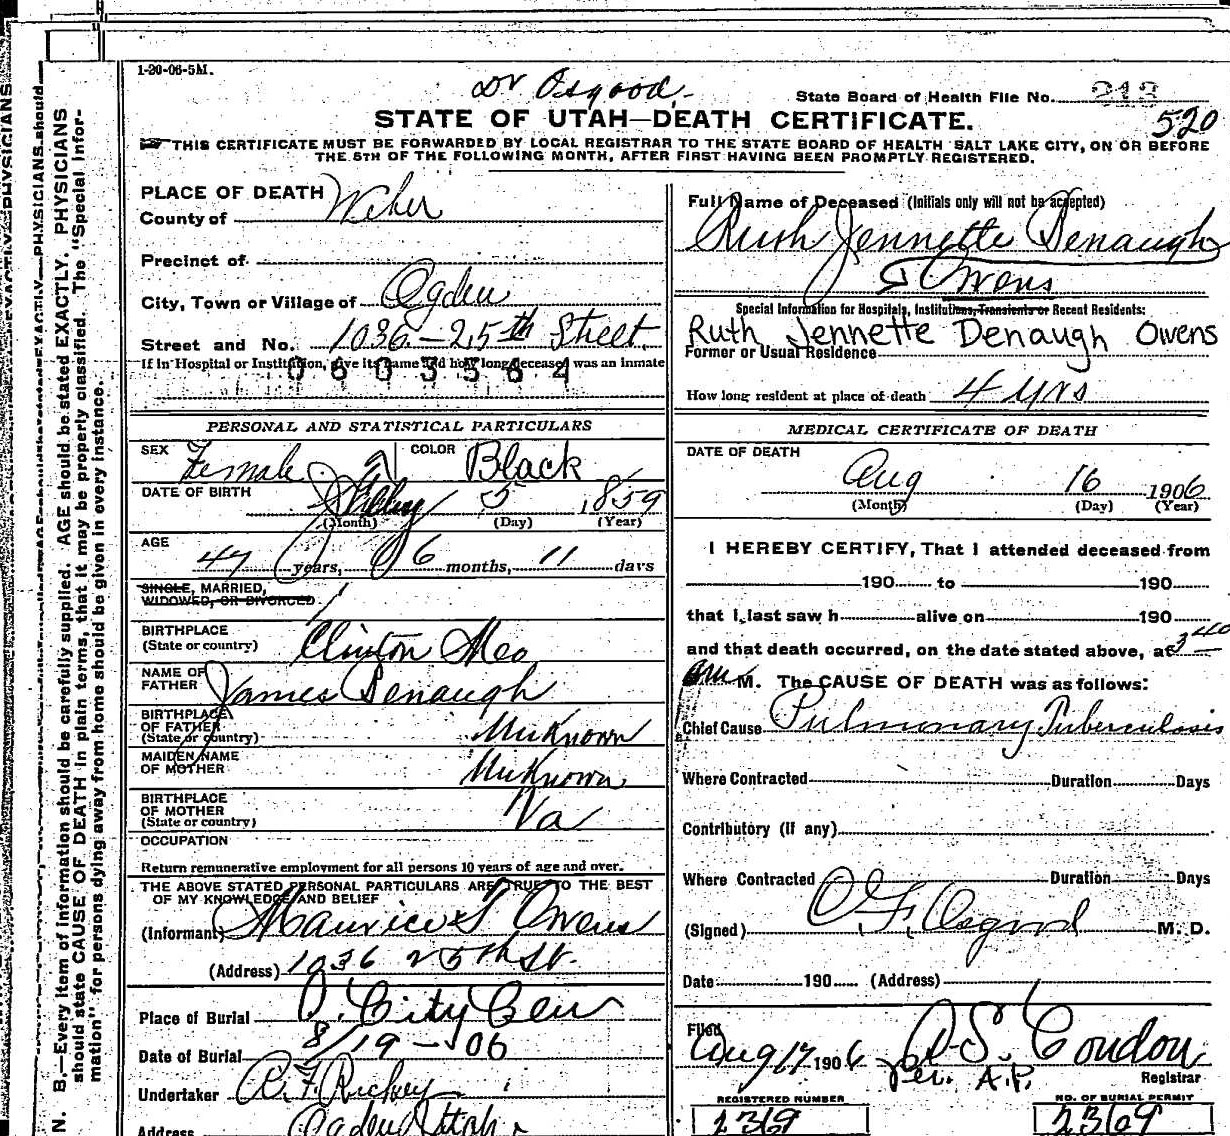 1-20-06-5M.
Dr Osgood.
State Board of Health File No. 213
520
STATE OF UTAH—DEATH CERTIFICATE.
THIS CERTIFICATE MUST BE FORWARDED BY LOCAL REGISTRAR TO THE STATE BOARD OF HEALTH SALT LAKE CITY, ON OR BEFORE
THE 5TH OF THE FOLLOWING MONTH, AFTER FIRST HAVING BEEN PROMPTLY REGISTERED.
N. B.—Every item of information should be carefully supplied. AGE should be stated EXACTLY. PHYSICIANS
should state CAUSE OF DEATH in plain terms, that it may be properly classified. The "Special Infor-
mation" for persons dying away from home should be given in every instance.
PLACE OF DEATH
County of Weber
Precinct of
City, Town or Village of Ogden
Street and No. 1036-25th Street
If in Hospital or Institution, give its name and how long deceased was an inmate
0603564
PERSONAL AND STATISTICAL PARTICULARS
SEX Female COLOR Black
DATE OF BIRTH 5 1859
(Month) (Day) (Year)
AGE
47 years, 6 months, 11 days
SINGLE, MARRIED,
WIDOWED, OR DIVORCED
BIRTHPLACE
(State or country) Clinton Mo
NAME OF
FATHER James Denaugh
BIRTHPLACE
OF FATHER
(State or country) Unknown
MAIDEN NAME
OF MOTHER Unknown
BIRTHPLACE
OF MOTHER
(State or country) Va
OCCUPATION
Return remunerative employment for all persons 10 years of age and over.
THE ABOVE STATED PERSONAL PARTICULARS ARE TRUE TO THE BEST
OF MY KNOWLEDGE AND BELIEF
(Informant) Maurice T Owens
(Address) 1036 25th St.
Place of Burial O. City Cem
Date of Burial 8/19-06
Undertaker R. F. Richey
Address Ogden Utah
Full Name of Deceased (Initials only will not be accepted)
Ruth Jennette Denaugh
Owens
Special Information for Hospitals, Institutions, Transients or Recent Residents:
Ruth Jennette Denaugh Owens
Former or Usual Residence
How long resident at place of death 4 yrs
MEDICAL CERTIFICATE OF DEATH
DATE OF DEATH
Aug 16 1906
(Month) (Day) (Year)
I HEREBY CERTIFY, That I attended deceased from
190 to 190
that I last saw h alive on 190
and that death occurred, on the date stated above, at 3 40
am M. The CAUSE OF DEATH was as follows:
Chief Cause Pulmonary Tuberculosis
Where Contracted Duration Days
Contributory (if any)
Where Contracted Duration Days
(Signed) O F. Osgood M. D.
Date 190 (Address)
Filed
Aug 17 1906 Condon
per. A.P. Registrar
REGISTERED NUMBER NO. OF BURIAL PERMIT
2369 2369